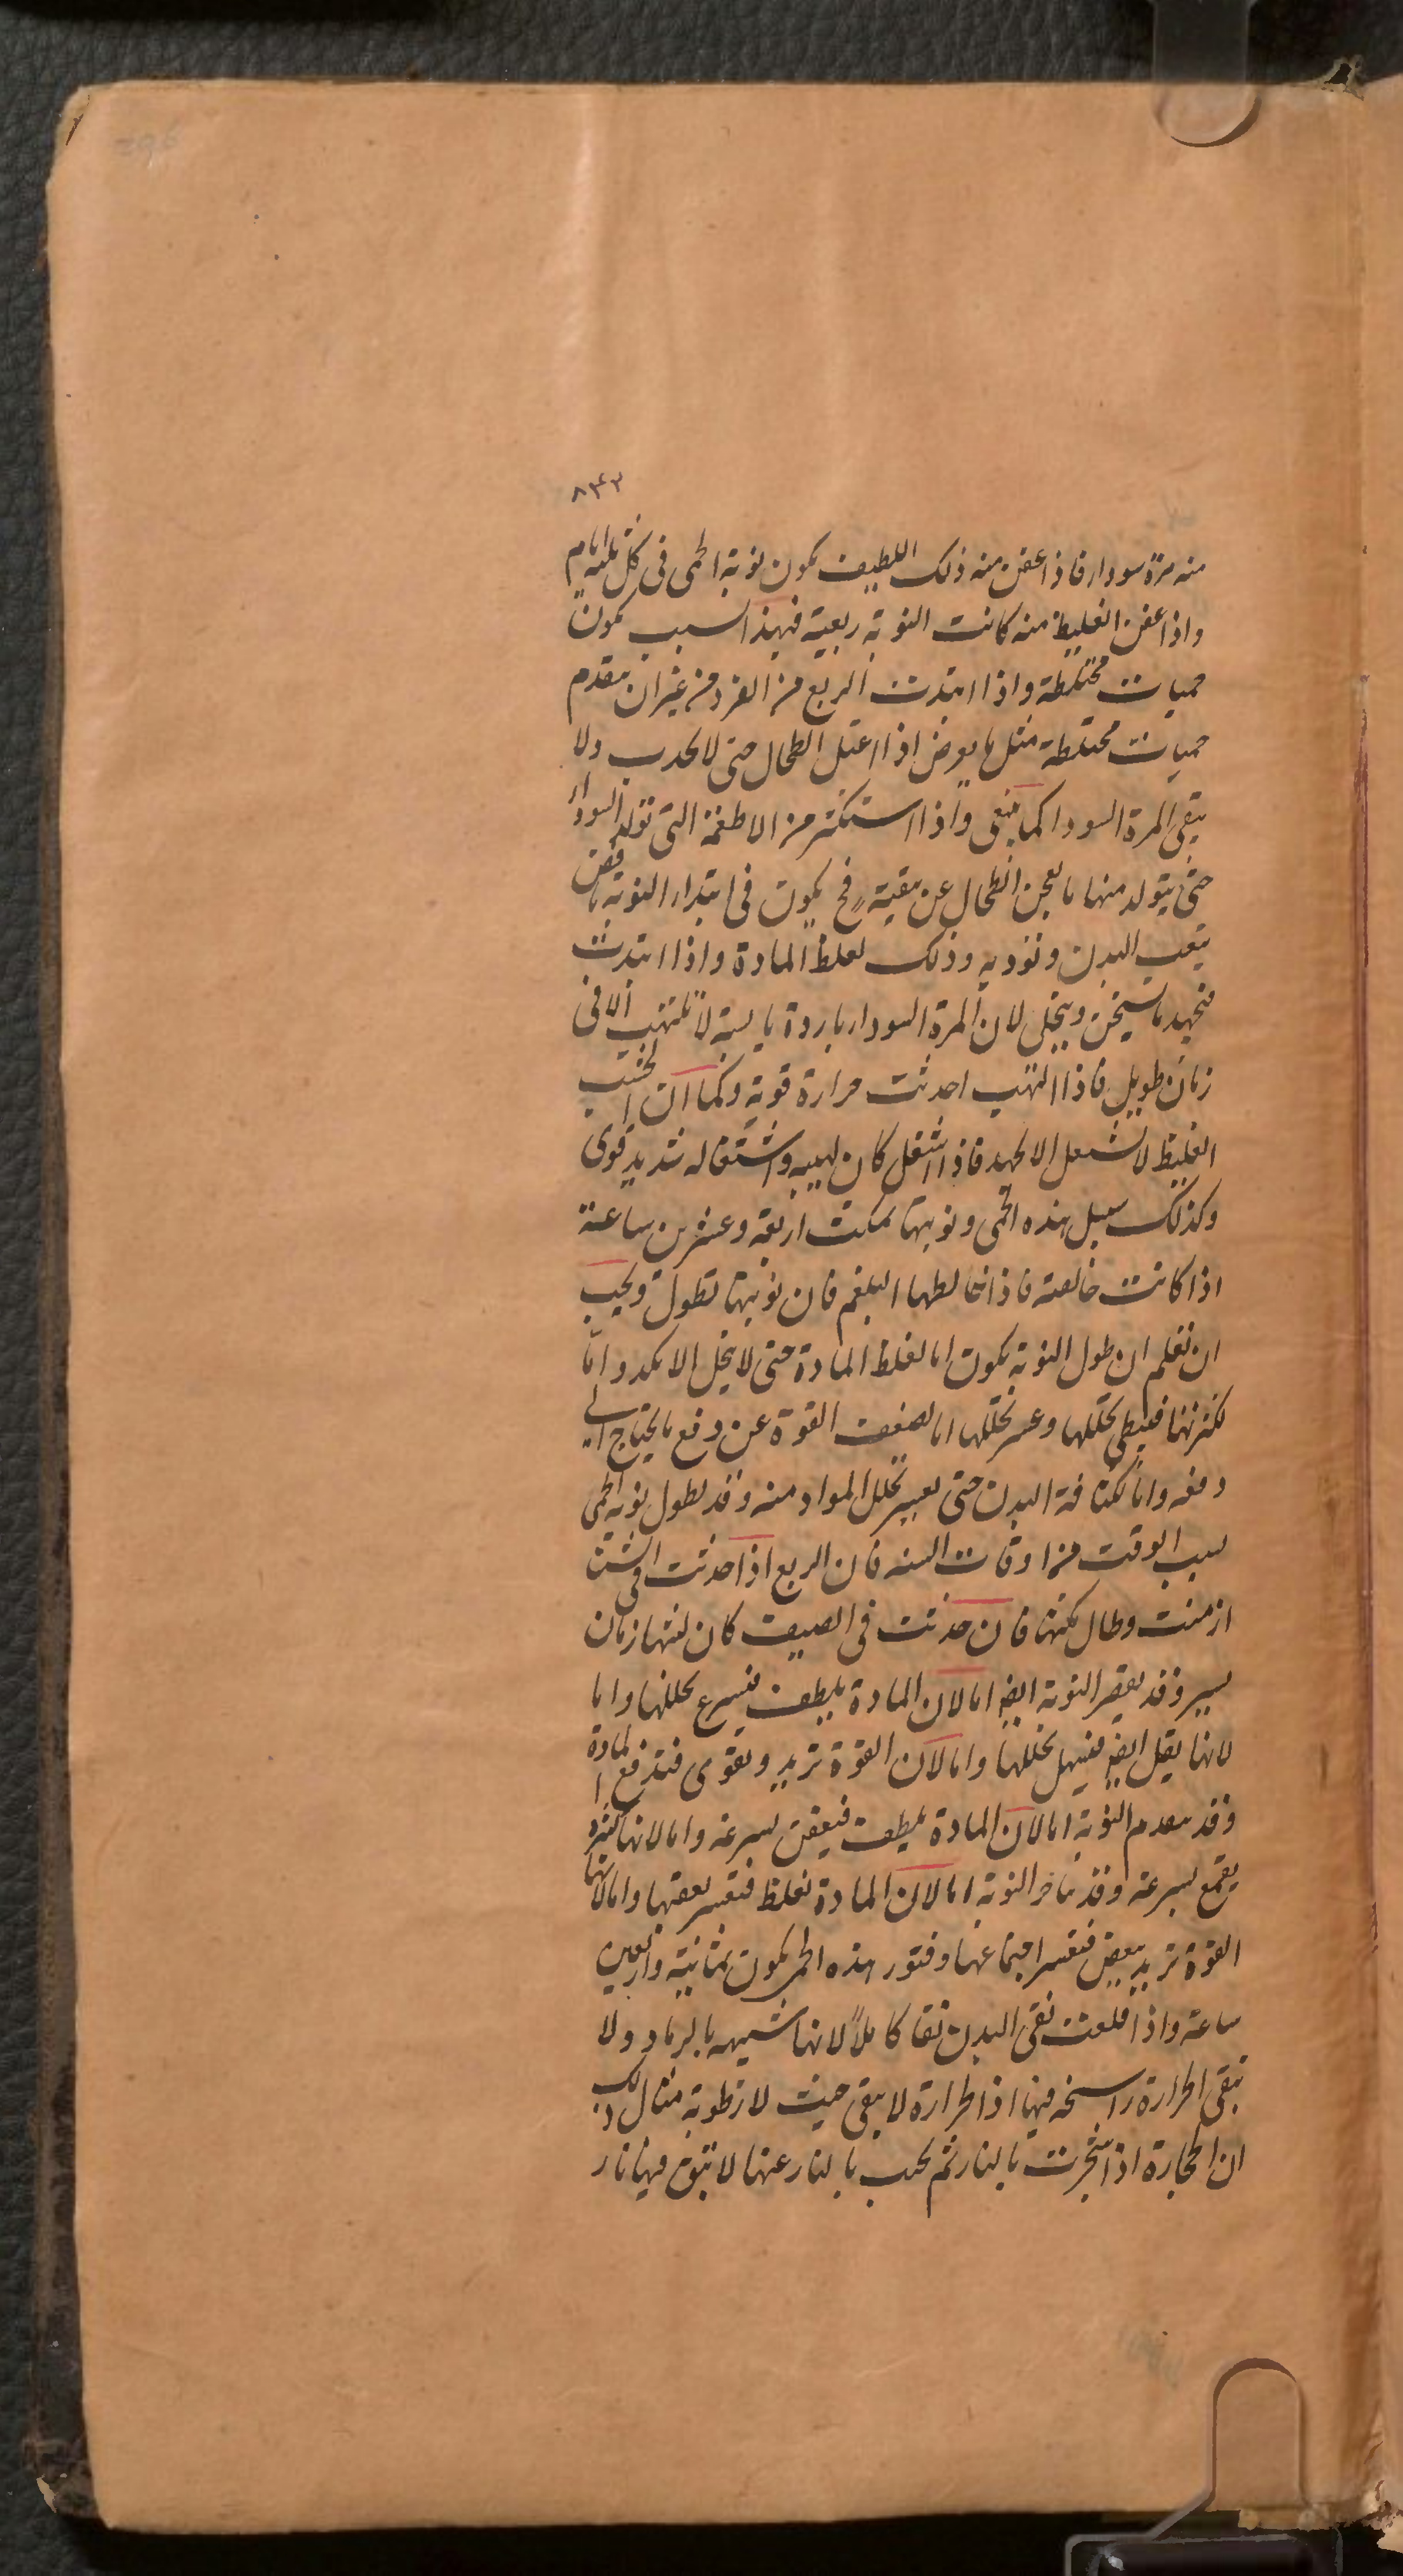 ۸۴۳
منه مرة سوداء فاذا عفن منه ذلك اللطيف يكون نوبة الحمى فى كل ثلثة ايام
واذا عفن الغليظ منه كانت النوبة ربعية فبهذا السبب يكون
حميات مختلطة واذا ابتدت الربع من الفرد من غير ان يتقدم
حميات مختلطة مثل ما يعرض اذا اعتل الطحال حتى لا يجذب ولا
ينقى المرة السودا كما ينبغى واذا استكثر من الاطعمة التى تولد السوداء
حتى يتولد منها ما يعجز الطحال عن تنقيته فح يكون فى ابتداء النوبة نافض
يتعب البدن وتؤذيه وذلك لغلظ المادة واذا ابتدت
فبجهد ما تسخن وينحل لان المرة السوداء باردة يابسة لا تلتهب الا فى
زمان طويل فاذا التهب احدثت حرارة قوية وكما ان الخشب
الغليظ لا يشتعل الا بجهد فاذا اشتعل كان لهيبه واشتعاله شديد قوى
وكذلك سبيل هذه الحمى ونوبتها تمكث اربعة وعشرين ساعة
اذا كانت خالصة فاذا خالطها البلغم فان نوبتها تطول ويجب
ان تعلم ان طول النوبة يكون اما لغلظ المادة حتى لا ينحل الا بكد واما
لكثرتها فيبطى تحللها وعسر تحللها اما لضعف القوة عن دفع ما يحتاج الى
دفعه واما لكثافة البدن حتى يعسر تحلل المواد منه وقد تطول نوبة الحمى
بسبب الوقت من اوقات السنه فان الربع اذا حدثت فى الشتا
ازمنت وطال مكثها فان حدثت فى الصيف كان لبثها زمان
يسير وقد يقصر النوبة ايضا اما لان المادة يلطف فيسرع تحللها واما
لانها يقل ايضا فيسهل تحللها واما لان القوة تزيد وتقوى فتدفع المادة
وقد يتقدم النوبة اما لان المادة يلطف فيعفن بسرعة واما لانها تكثر و
يجتمع بسرعة وقد يتاخر النوبة اما لان المادة تغلظ فتعسر تعفنها واما لانها
القوة تزيد فيعسر اجتماعها وفتور هذه الحمى يكون ثمانية واربعين
ساعة واذا اقلعت نقى البدن نقا كاملا لانها شبيهه بالرماد ولا
تبقى الحرارة راسخه فيها اذ الحرارة لا يبقى حيث لا رطوبة مثال ذلك
ان الحجارة اذا سجرت بالنار ثم بالنار عنها لا تبق فيها نار